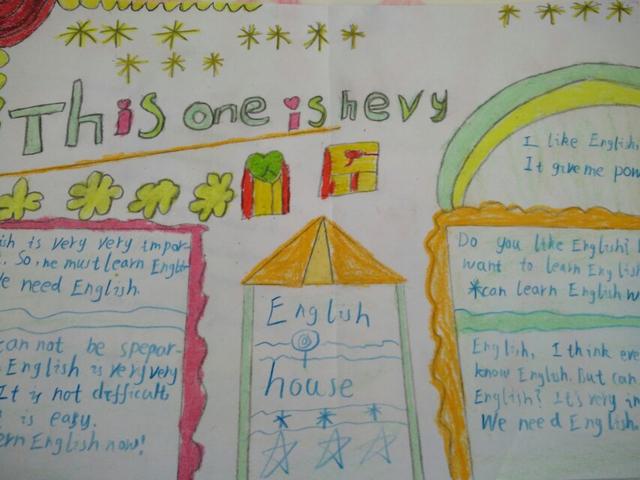 This one is hevy
I like English,
It give me pow
ish is very very impor-
. So, we must learn Englis
We need English.
can not be spepar-
English is very very
It is not difficult
is easy.
ern English now!
English
house
Do you like English?
want to learn English
can learn English w
English, I think eve
know English. But can
English? It's very in
We need English.